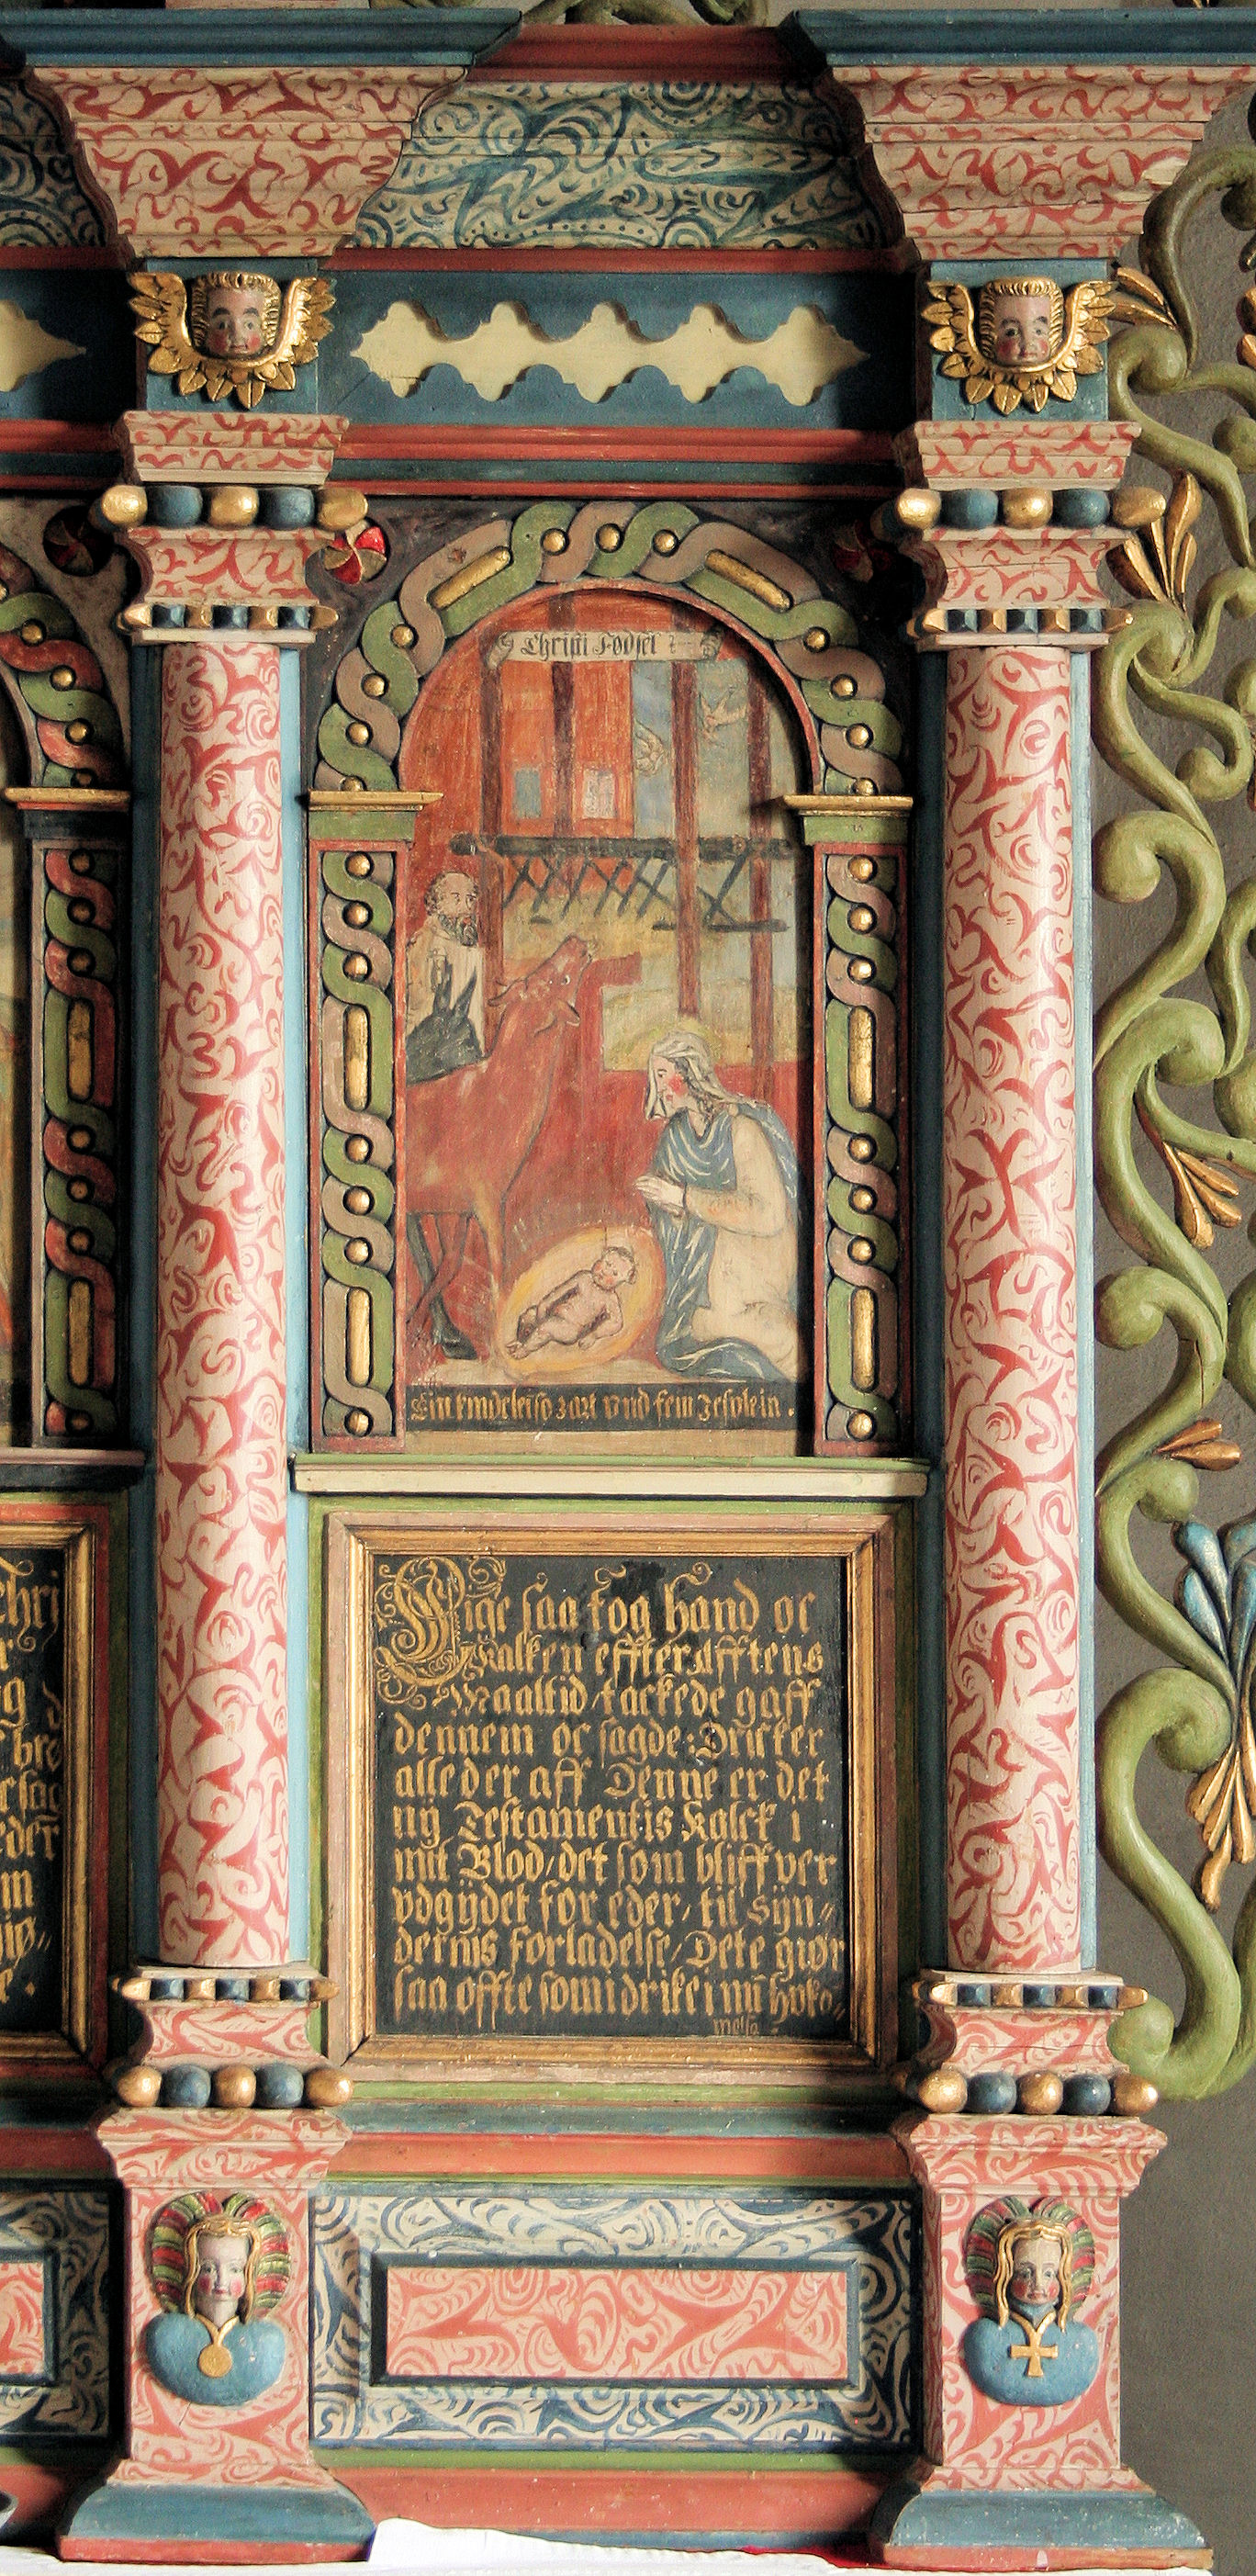 Christi Fødsel
Ein kindelein so zart vnd fein Jesulein.
Lige saa tog hand oc
Kalken effter afftens
Maaltid / tackede gaff
dennem oc sagde: Dricker
alle der aff Denne er det
nÿ Testamentis Kalck i
mit Blod / det som bliffver
vdgÿdet for eder / til Sÿn=
dernis forladelse / Dete giør
saa offte som i drike i min huko=
melse
Chri
r
g
bre
e sag
eder
m
iø=
e.